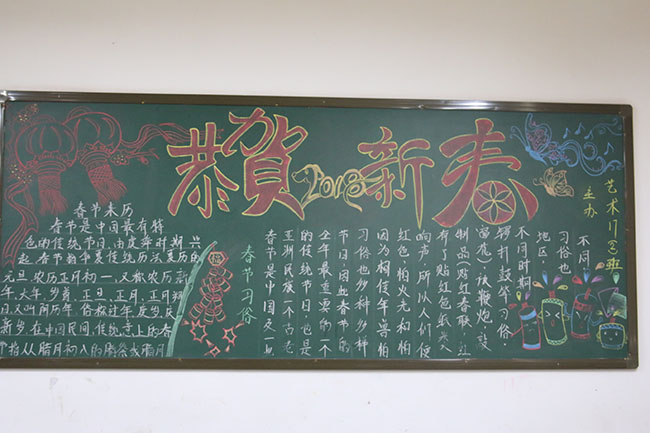 恭賀2018新春
春节来历
春节是中国最有特
色的传统节日,由虞舜时期兴
起.春节的华夏传统历法夏历的
元旦,农历正月初一,又称农历
年,大年,岁首,正旦,正月,正月朔
日,又叫阴历年,俗称过年度岁庆
新岁,在中国民间,传统意上的春
节指从腊月初八的腊祭或腊月
春节习俗
春节是中国及一
亚洲民族一个古老
的传统节日也是
全年最重要的一个
节日因此春节的
习俗也多种多样
因为相传年兽怕
红色,怕火光和怕
响声,所以人们便
有了贴红色纸或
制品贴红春联,
放鞭炮,敲
锣打鼓等习俗
不同时期
地区
习俗也
不同
主办
艺术 班